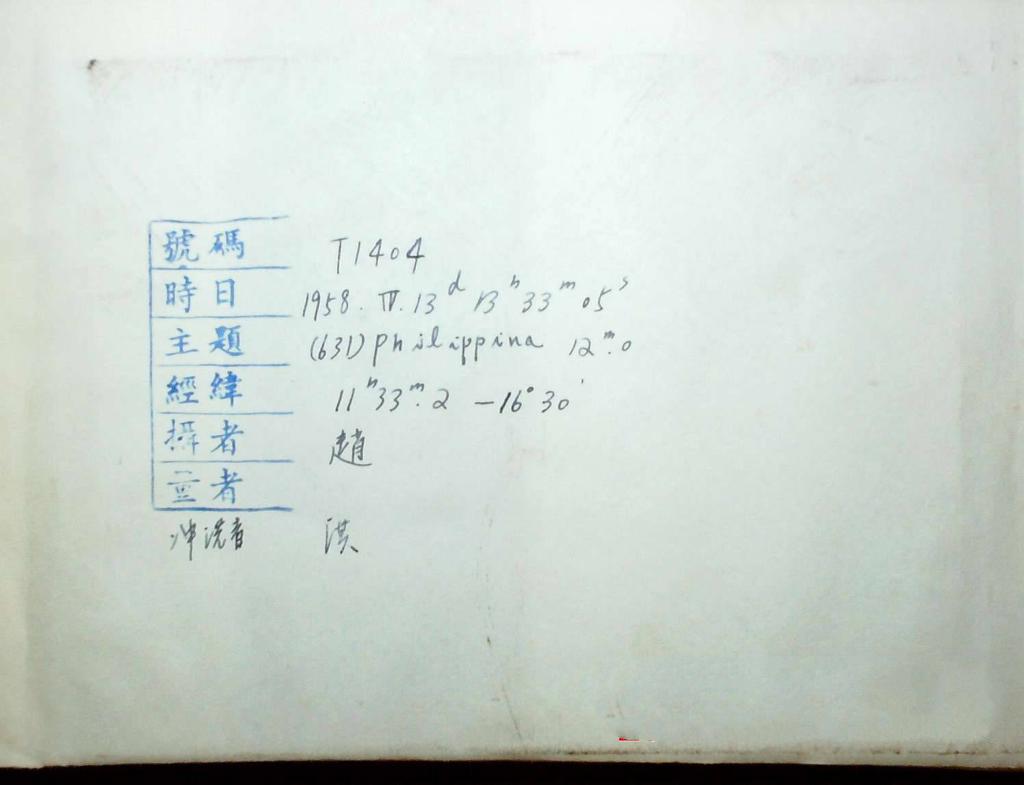 號碼 T1404
時日 1958. IV. 13ᵈ 13ʰ 33ᵐ 05ˢ
主題 (631) Philippina 12ᵐ.0
經緯 11ʰ33ᵐ.2 -16°30'
攝者 趙
量者
冲洗者 洪